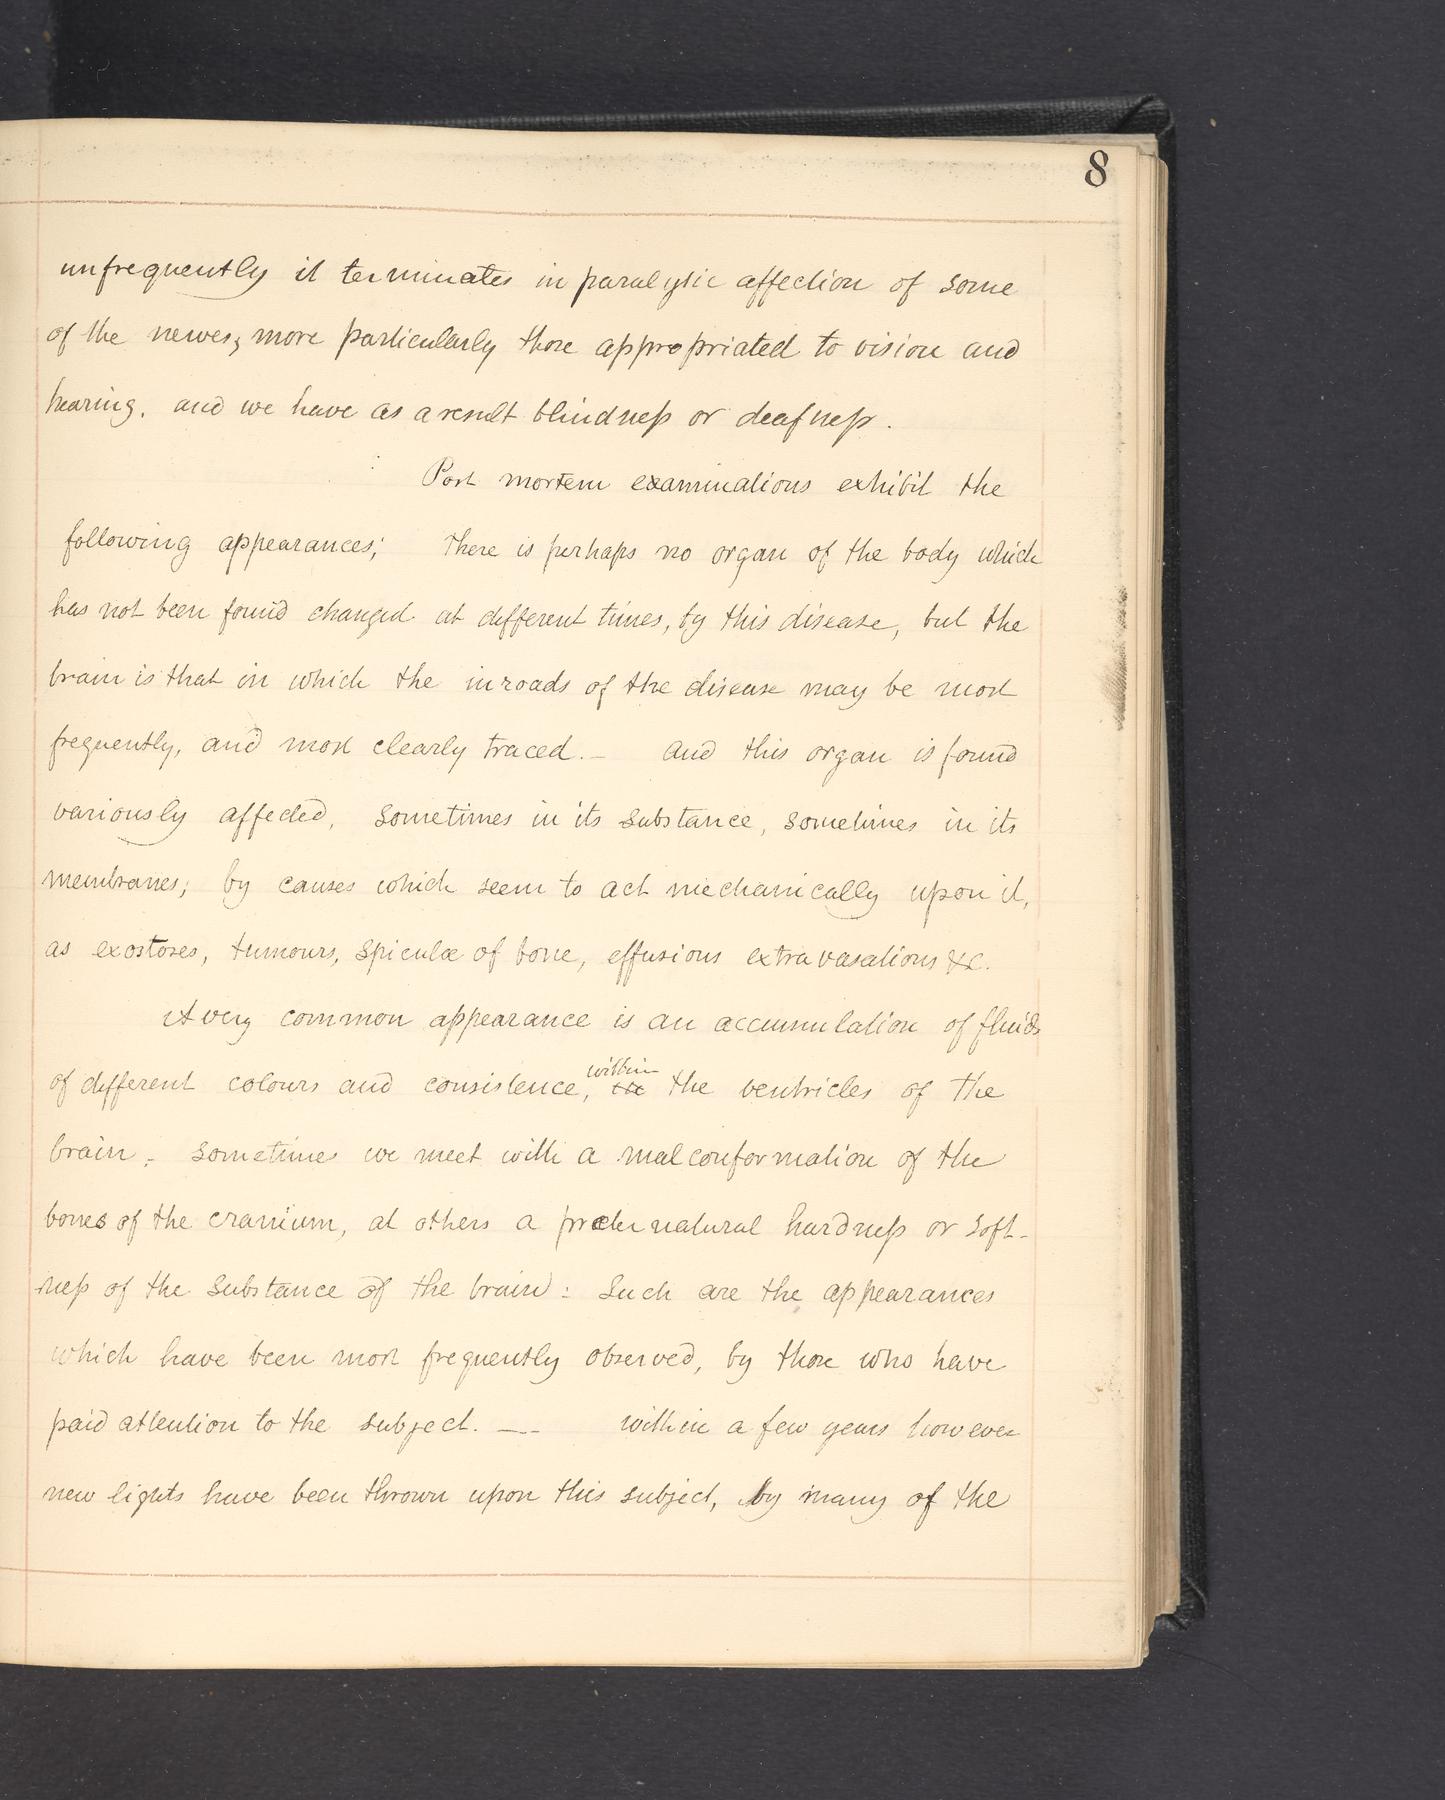 8
unfrequently it terminates in paralytic affection of some
of the nerves, more particularly those appropriated to vision and
hearing. and we have as a result blindness or deafness.
Post mortem examinations exhibit the
following appearances; There is perhaps no organ of the body which
has not been found changed at different times, by this disease, but the
brain is that in which the inroads of the disease may be most
frequently, and most clearly traced. — and this organ is found
variously affected, sometimes in its substance, sometimes in its
membranes; by causes which seem to act mechanically upon it,
as exostoses, tumours, spiculæ of bone, effusions extravasations &c.
A very common appearance is an accumulation of fluids
within
of different colours and consistence, the the ventricles of the
brain. sometimes we meet with a malconformation of the
bones of the cranium, at others a preternatural hardness or soft-
ness of the substance of the brain: Such are the appearances
which have been most frequently observed, by those who have
paid attention to the subject. — within a few years however
new lights have been thrown upon this subject, by many of the